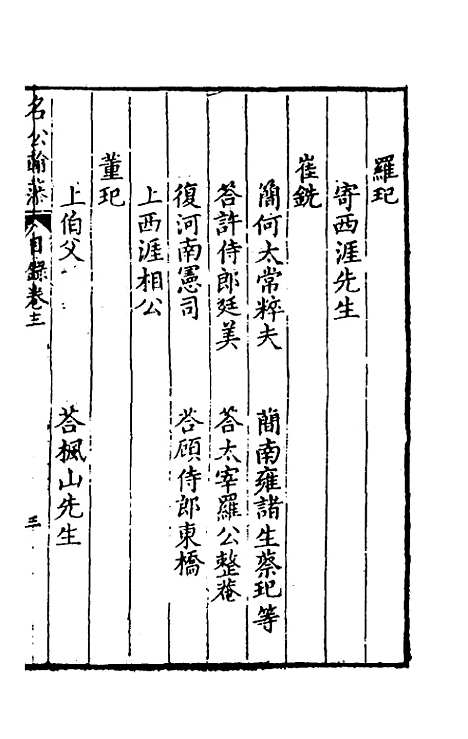 羅玘
寄西涯先生
崔銑
簡何太常粹夫 簡南雍諸生蔡玘等
答許侍郎廷美 答太宰羅公整菴
復河南憲司 答顧侍郎東橋
上西涯相公
董玘
上伯父 答楓山先生
名公翰藻 目錄卷三 三